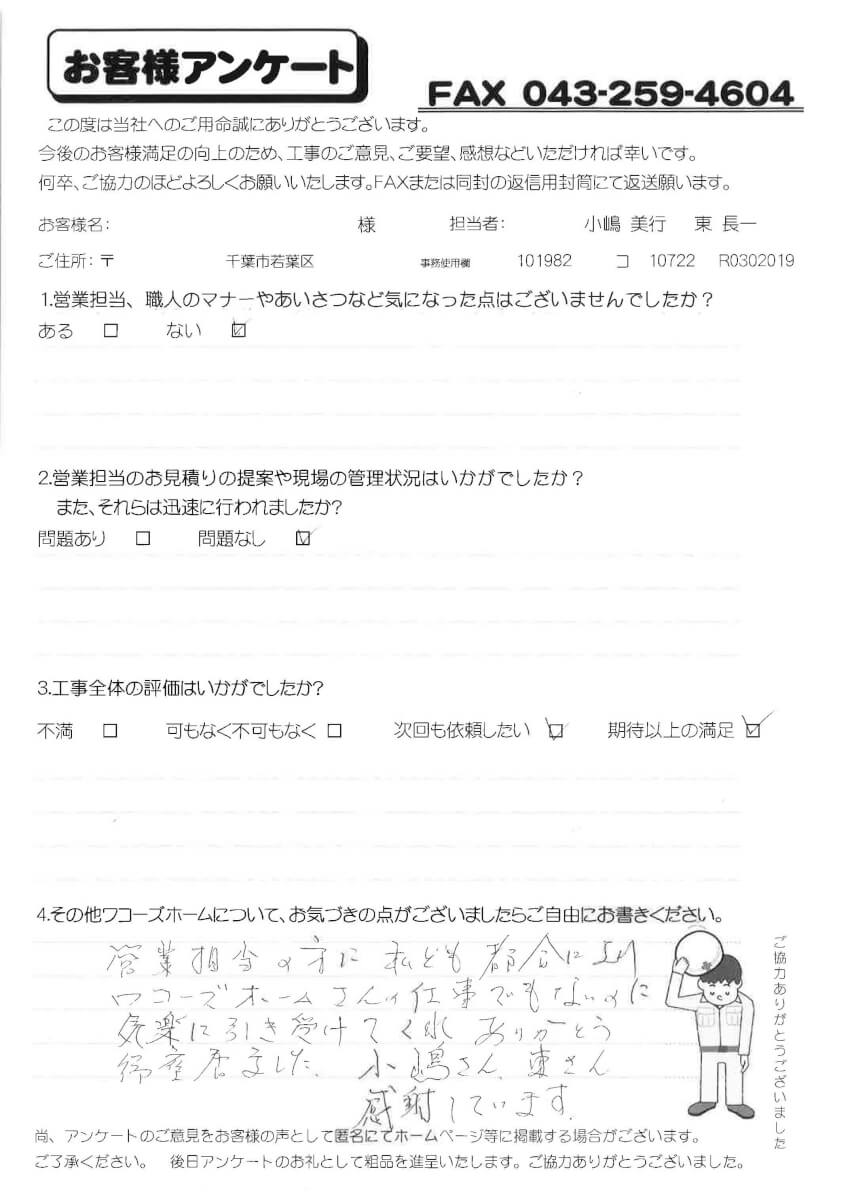 お客様アンケート
FAX 043-259-4604
この度は当社へのご用命誠にありがとうございます。
今後のお客様満足の向上のため、工事のご意見、ご要望、感想などいただければ幸いです。
何卒、ご協力のほどよろしくお願いいたします。FAXまたは同封の返信用封筒にて返送願います。
お客様名: 様 担当者: 小嶋 美行 東 長一
ご住所: 〒 千葉市若葉区 事務使用欄 101982 コ 10722 R0302019
1.営業担当、職人のマナーやあいさつなど気になった点はございませんでしたか？
ある □ ない ☑
2.営業担当のお見積りの提案や現場の管理状況はいかがでしたか？
また、それらは迅速に行われましたか?
問題あり □ 問題なし ☑
3.工事全体の評価はいかがでしたか?
不満 □ 可もなく不可もなく □ 次回も依頼したい ☑ 期待以上の満足 ☑
4.その他ワコーズホームについて、お気づきの点がございましたらご自由にお書きください。
営業担当の方に 私ども都合により
ワコーズホームさんの仕事でもないのに
気楽に引き受けてくれ ありがとう
御座居ました。小嶋さん、東さん
感謝しています。
ご協力ありがとうございました
尚、アンケートのご意見をお客様の声として匿名にてホームページ等に掲載する場合がございます。
ご了承ください。 後日アンケートのお礼として粗品を進呈いたします。ご協力ありがとうございました。